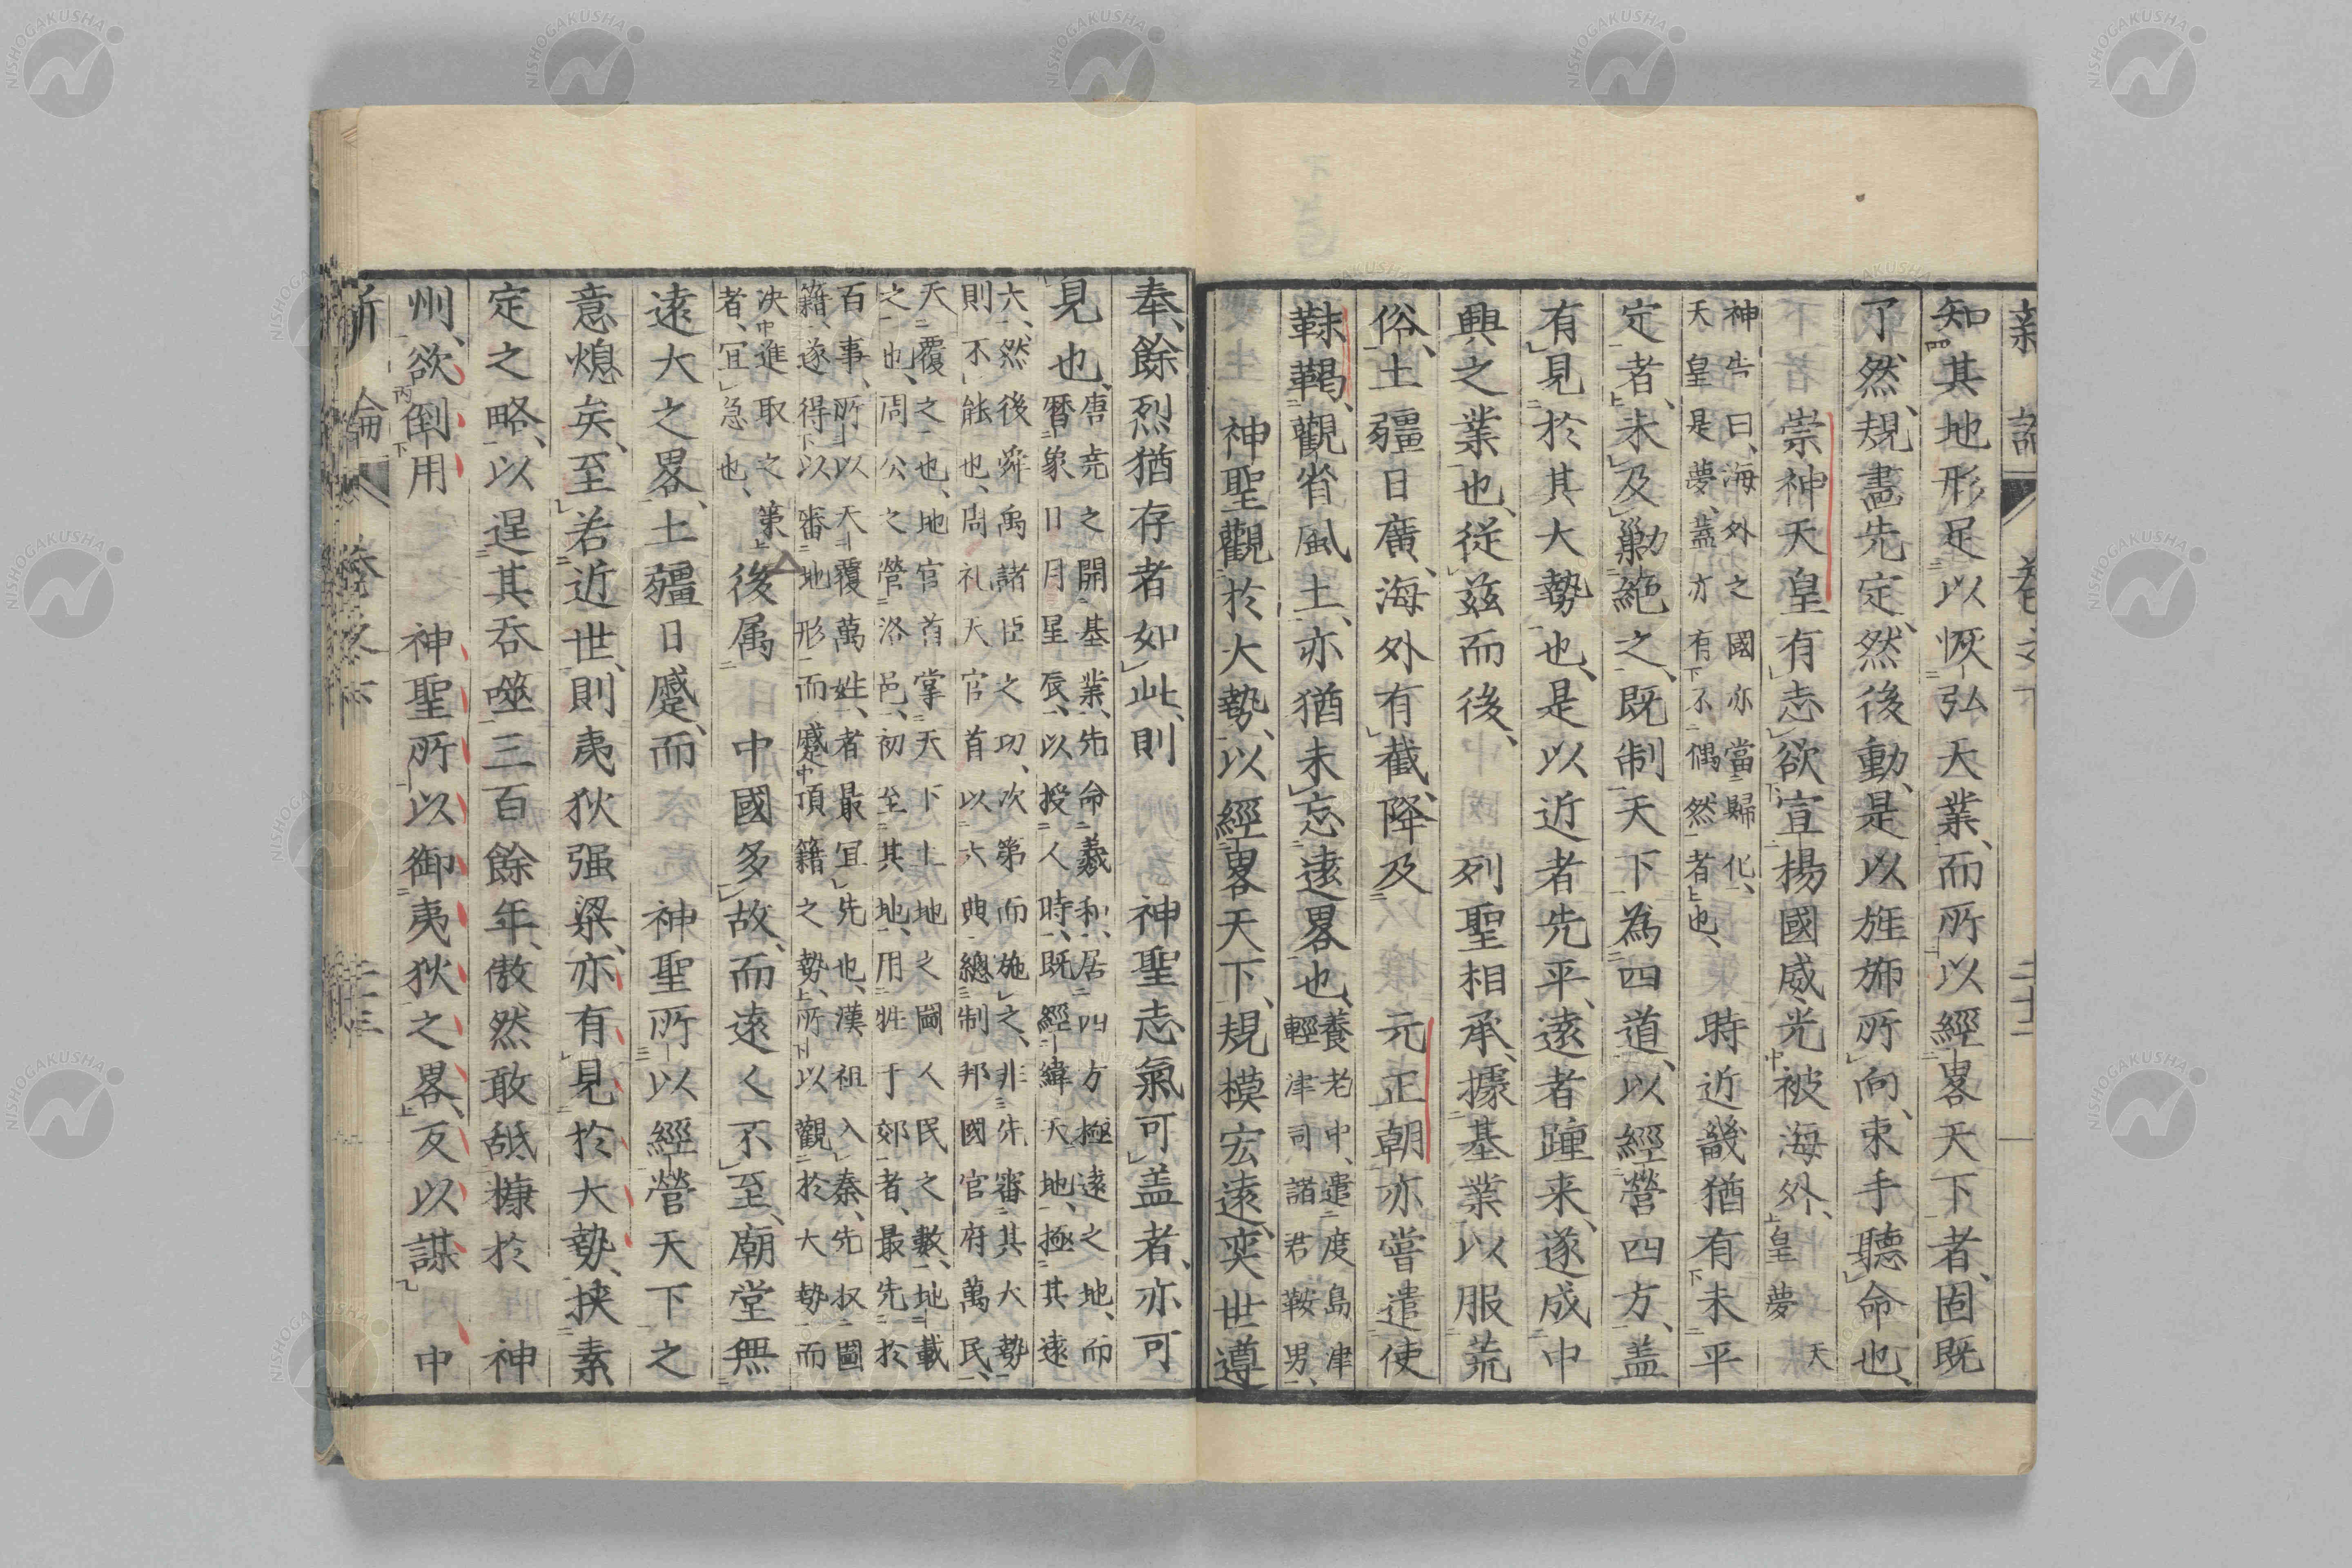 新論 卷之下 二十二
知其地形足以恢弘天業、而所以經畧天下者、固既
了然、規畫先定、然後動、是以旌斾所向、束手聽命也、
崇神天皇有志欲宣揚國威光被海外、皇夢天
神告曰、海外之國亦當歸化、
天皇是夢、蓋亦有不偶然者也、
時近畿猶有未平
定者、未及勦絶之、既制天下為四道、以經營四方、盖
有見於其大勢也、是以近者先平、遠者踵来、遂成中
興之業也、従茲而後、列聖相承、據基業以服荒
俗、土疆日廣、海外有截、降及元正朝亦嘗遣使
靺鞨、觀省風土、亦猶未忘遠畧也、
養老中、遣度島津
輕津司諸君鞍男、
神聖觀於大勢、以經畧天下、規模宏遠、奕世遵
奉、餘烈猶存者如此、則神聖志氣可盖者、亦可
見也、
唐尭之開基業、先命羲和、居四方極遠之地、而
暦象日月星辰、以授人時、既經緯天地、極其遠
六、然後舜禹諸臣之功、次第而施之、非先審其大勢
則不能也、周礼天官首以六典、總制邦國官府萬民、
天覆之也、地官首掌天下土地之圖人民之數、地載
之也、周公之營洛邑、初至其地、用牲于郊者、最先於
百事、所以天覆萬姓者最冝先也、漢祖入秦、先収圖
籍、遂得以審地形而蹙項籍之勢、所以觀於大勢而
决進取之策
者、冝急也、
後属中國多故、而遠く不至、廟堂無
遠大之畧、土疆日蹙、而神聖所以經營天下之
意熄矣、至若近世、則夷狄强梁、亦有見於大勢、挾素
定之略、以逞其吞噬、三百餘年、傲然敢舐糠於神
州、欲倒用神聖所以御夷狄之畧、反以謀中
新論 卷之下 二十三